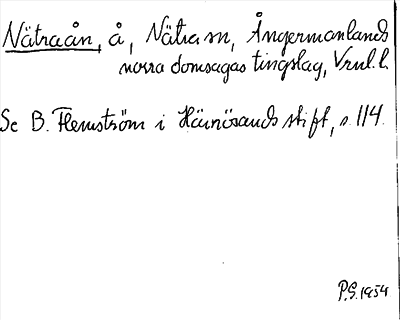 Nätraån, å, Nätra sn, Ångermanlands
norra domsagas tingslag, Vrnl. l.
Se B. Flemström i Härnösands stift, s. 114.
P.G. 1954